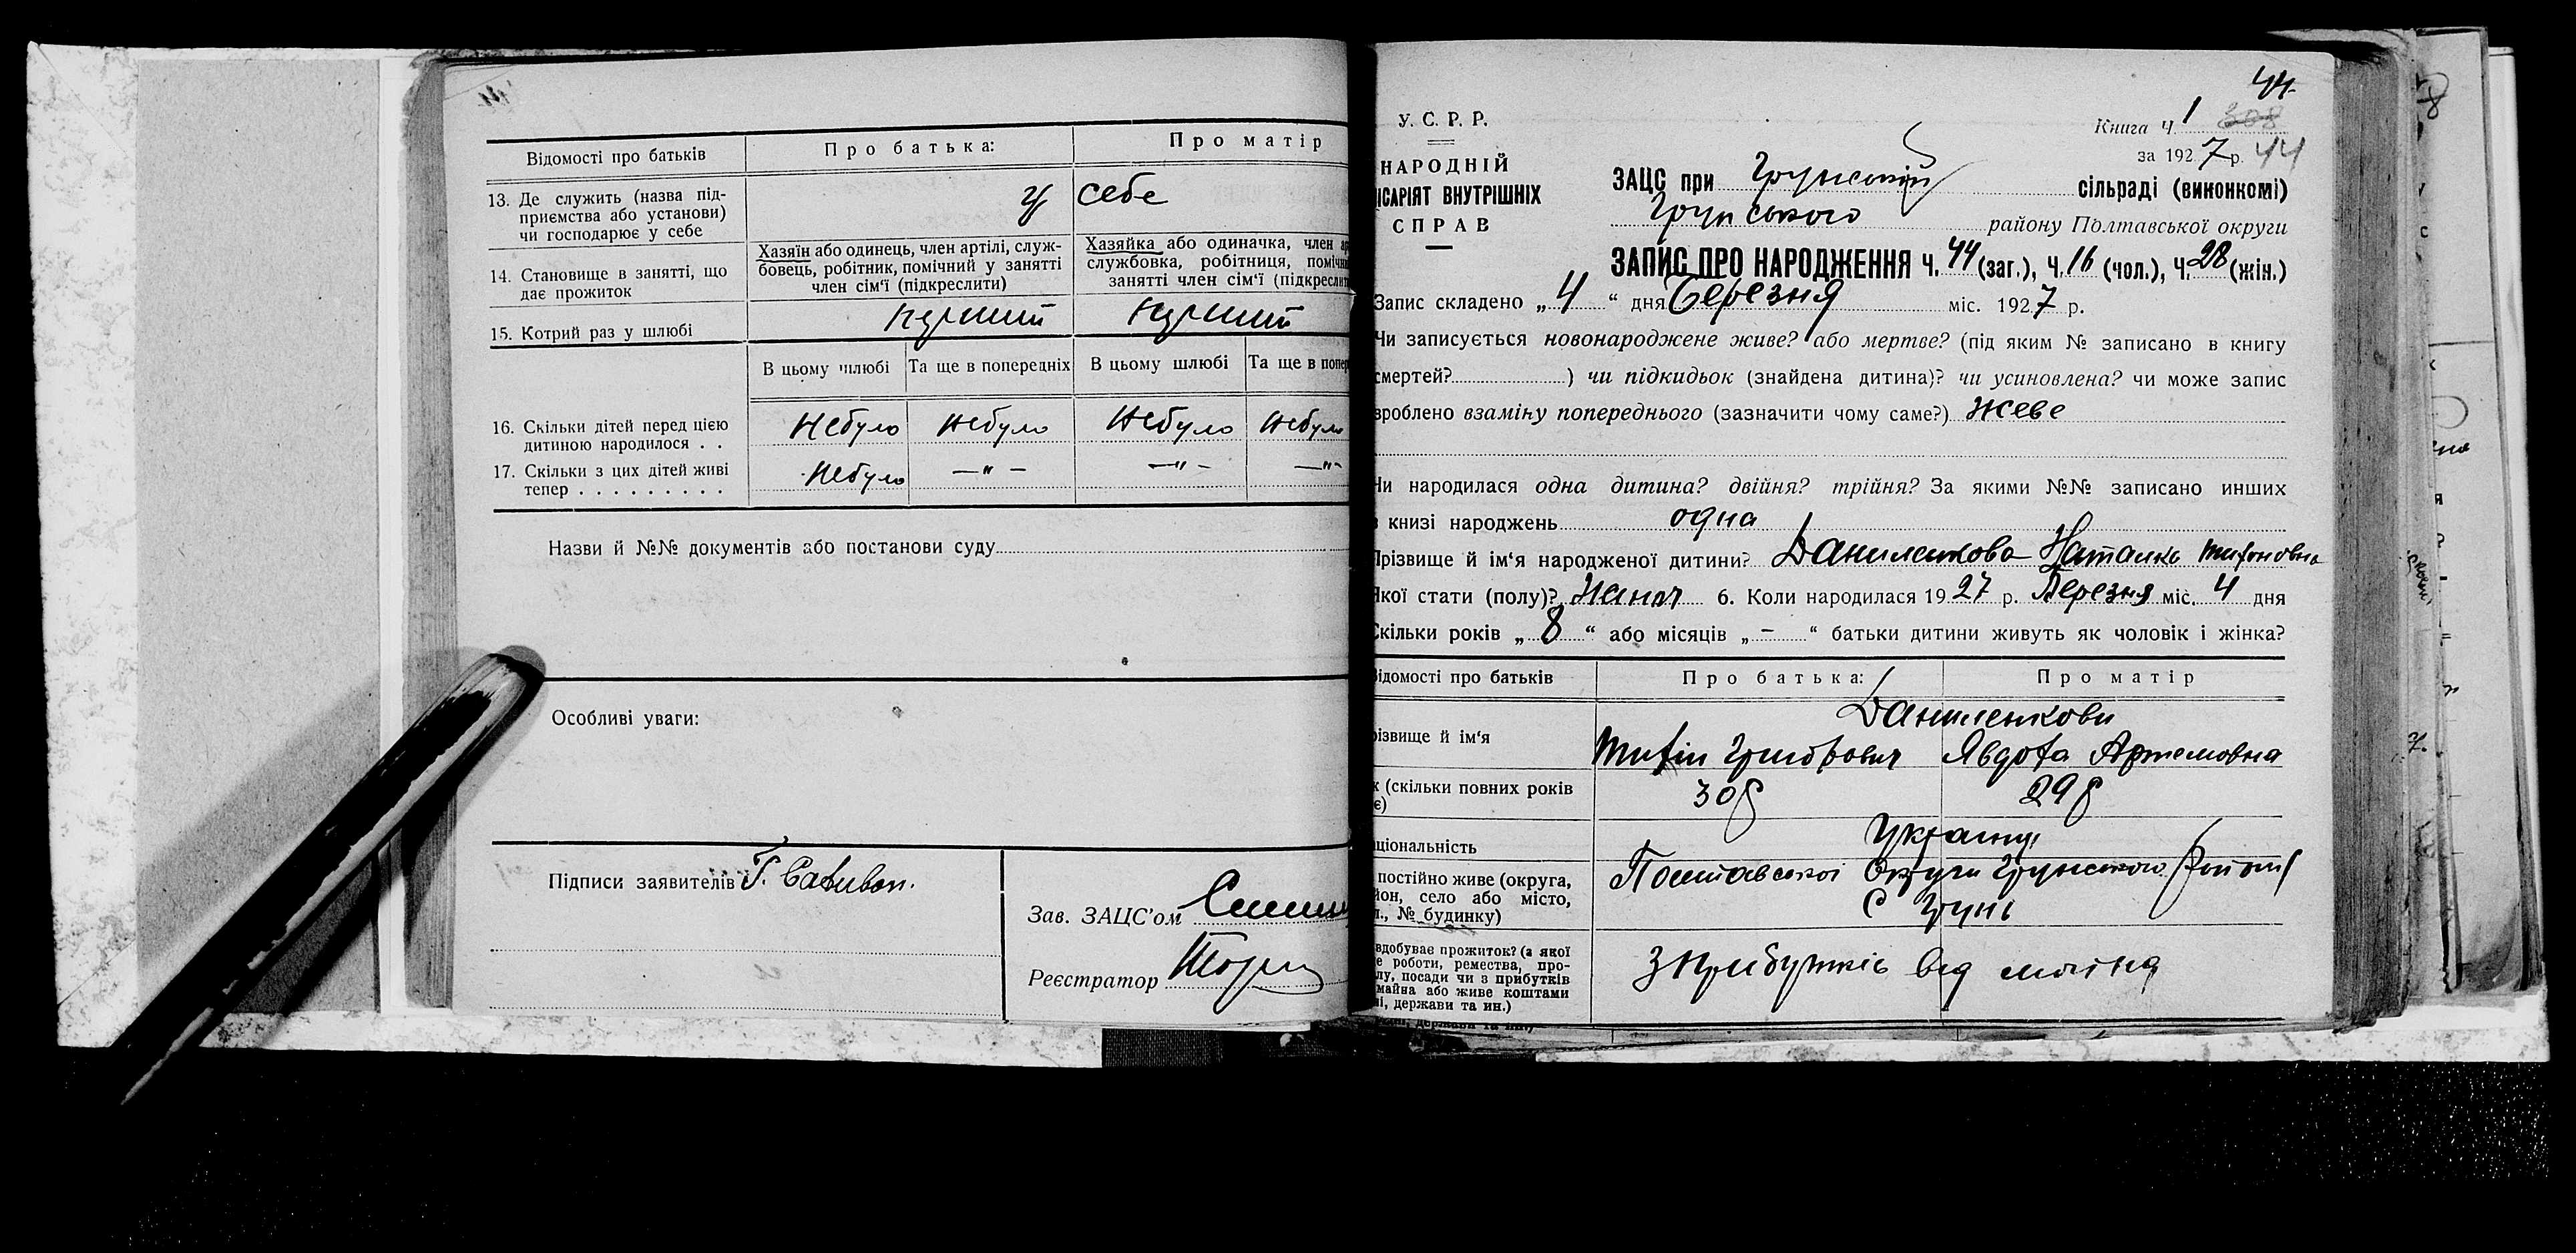 Відомості про батьків
Про батька:
Про матір
13. Де служить (назва під-
приємства або установи)
чи господарює у себе
У себе
14. Становище в занятті, що
дає прожиток
Хазяїн або одинець, член артілі, служ-
бовець, робітник, помічний у занятті
член сім'ї (підкреслити)
Хазяйка або одиначка, член
службовка, робітниця,
занятті член сім'ї
15. Котрий раз у шлюбі
перший
перший
В цьому шлюбі
Та ще в попередніх
В цьому шлюбі
Та ще в
16. Скільки дітей перед цією
дитиною народилося . .
Небуло
Небуло
Небуло
Небуло
17. Скільки з цих дітей живі
тепер . . . . . . . . .
Небуло
—"—
—"—
—"—
Назви й №№ документів або постанови суду
Особливі уваги:
Підписи заявителів
Зав. ЗАЦС'ом
Реєстратор
44
У. С. Р. Р.
НАРОДНІЙ
ІСАРІЯТ ВНУТРІШНІХ
СПРАВ
Книга Ч. 1 308
за 1927 р. 44
ЗАЦС при Грунській сільраді (виконкомі)
Грунського району Полтавської округи
ЗАПИС ПРО НАРОДЖЕННЯ Ч. 44 (заг.), Ч. 16 (чол.), Ч. 28 (жін.)
Запис складено „4" дня Березня міс. 1927 р.
Чи записується новонароджене живе? або мертве? (під яким № записано в книгу
смертей? ) чи підкидьок (знайдена дитина)? чи усиновлена? чи може запис
зроблено взаміну попереднього (зазначити чому саме?) живе
Чи народилася одна дитина? двійня? трійня? За якими №№ записано инших
в книзі народжень одна
Прізвище й ім'я народженої дитини? Даниленкова Наталка Тифоновна
Якої стати (полу)? Жіноч 6. Коли народилася 1927 р. Березня міс. 4 дня
Скільки років „8" або місяців „–" батьки дитини живуть як чоловік і жінка?
Відомості про батьків
Про батька:
Про матір
різвище й ім'я
Даниленкови
Тифін Григорович
Явдоха Артемовна
к (скільки повних років
є)
30р
29р
ціональність
Українці
постійно живе (округа,
йон, село або місто,
л., № будинку)
Полтавської Округи Грунського Району
С Грунь
вдобуває прожиток? (з якої
е роботи, ремества, про-
лу, посади чи з прибутків
майна або живе коштами
ні, держави та ин.)
З прибутків від майна